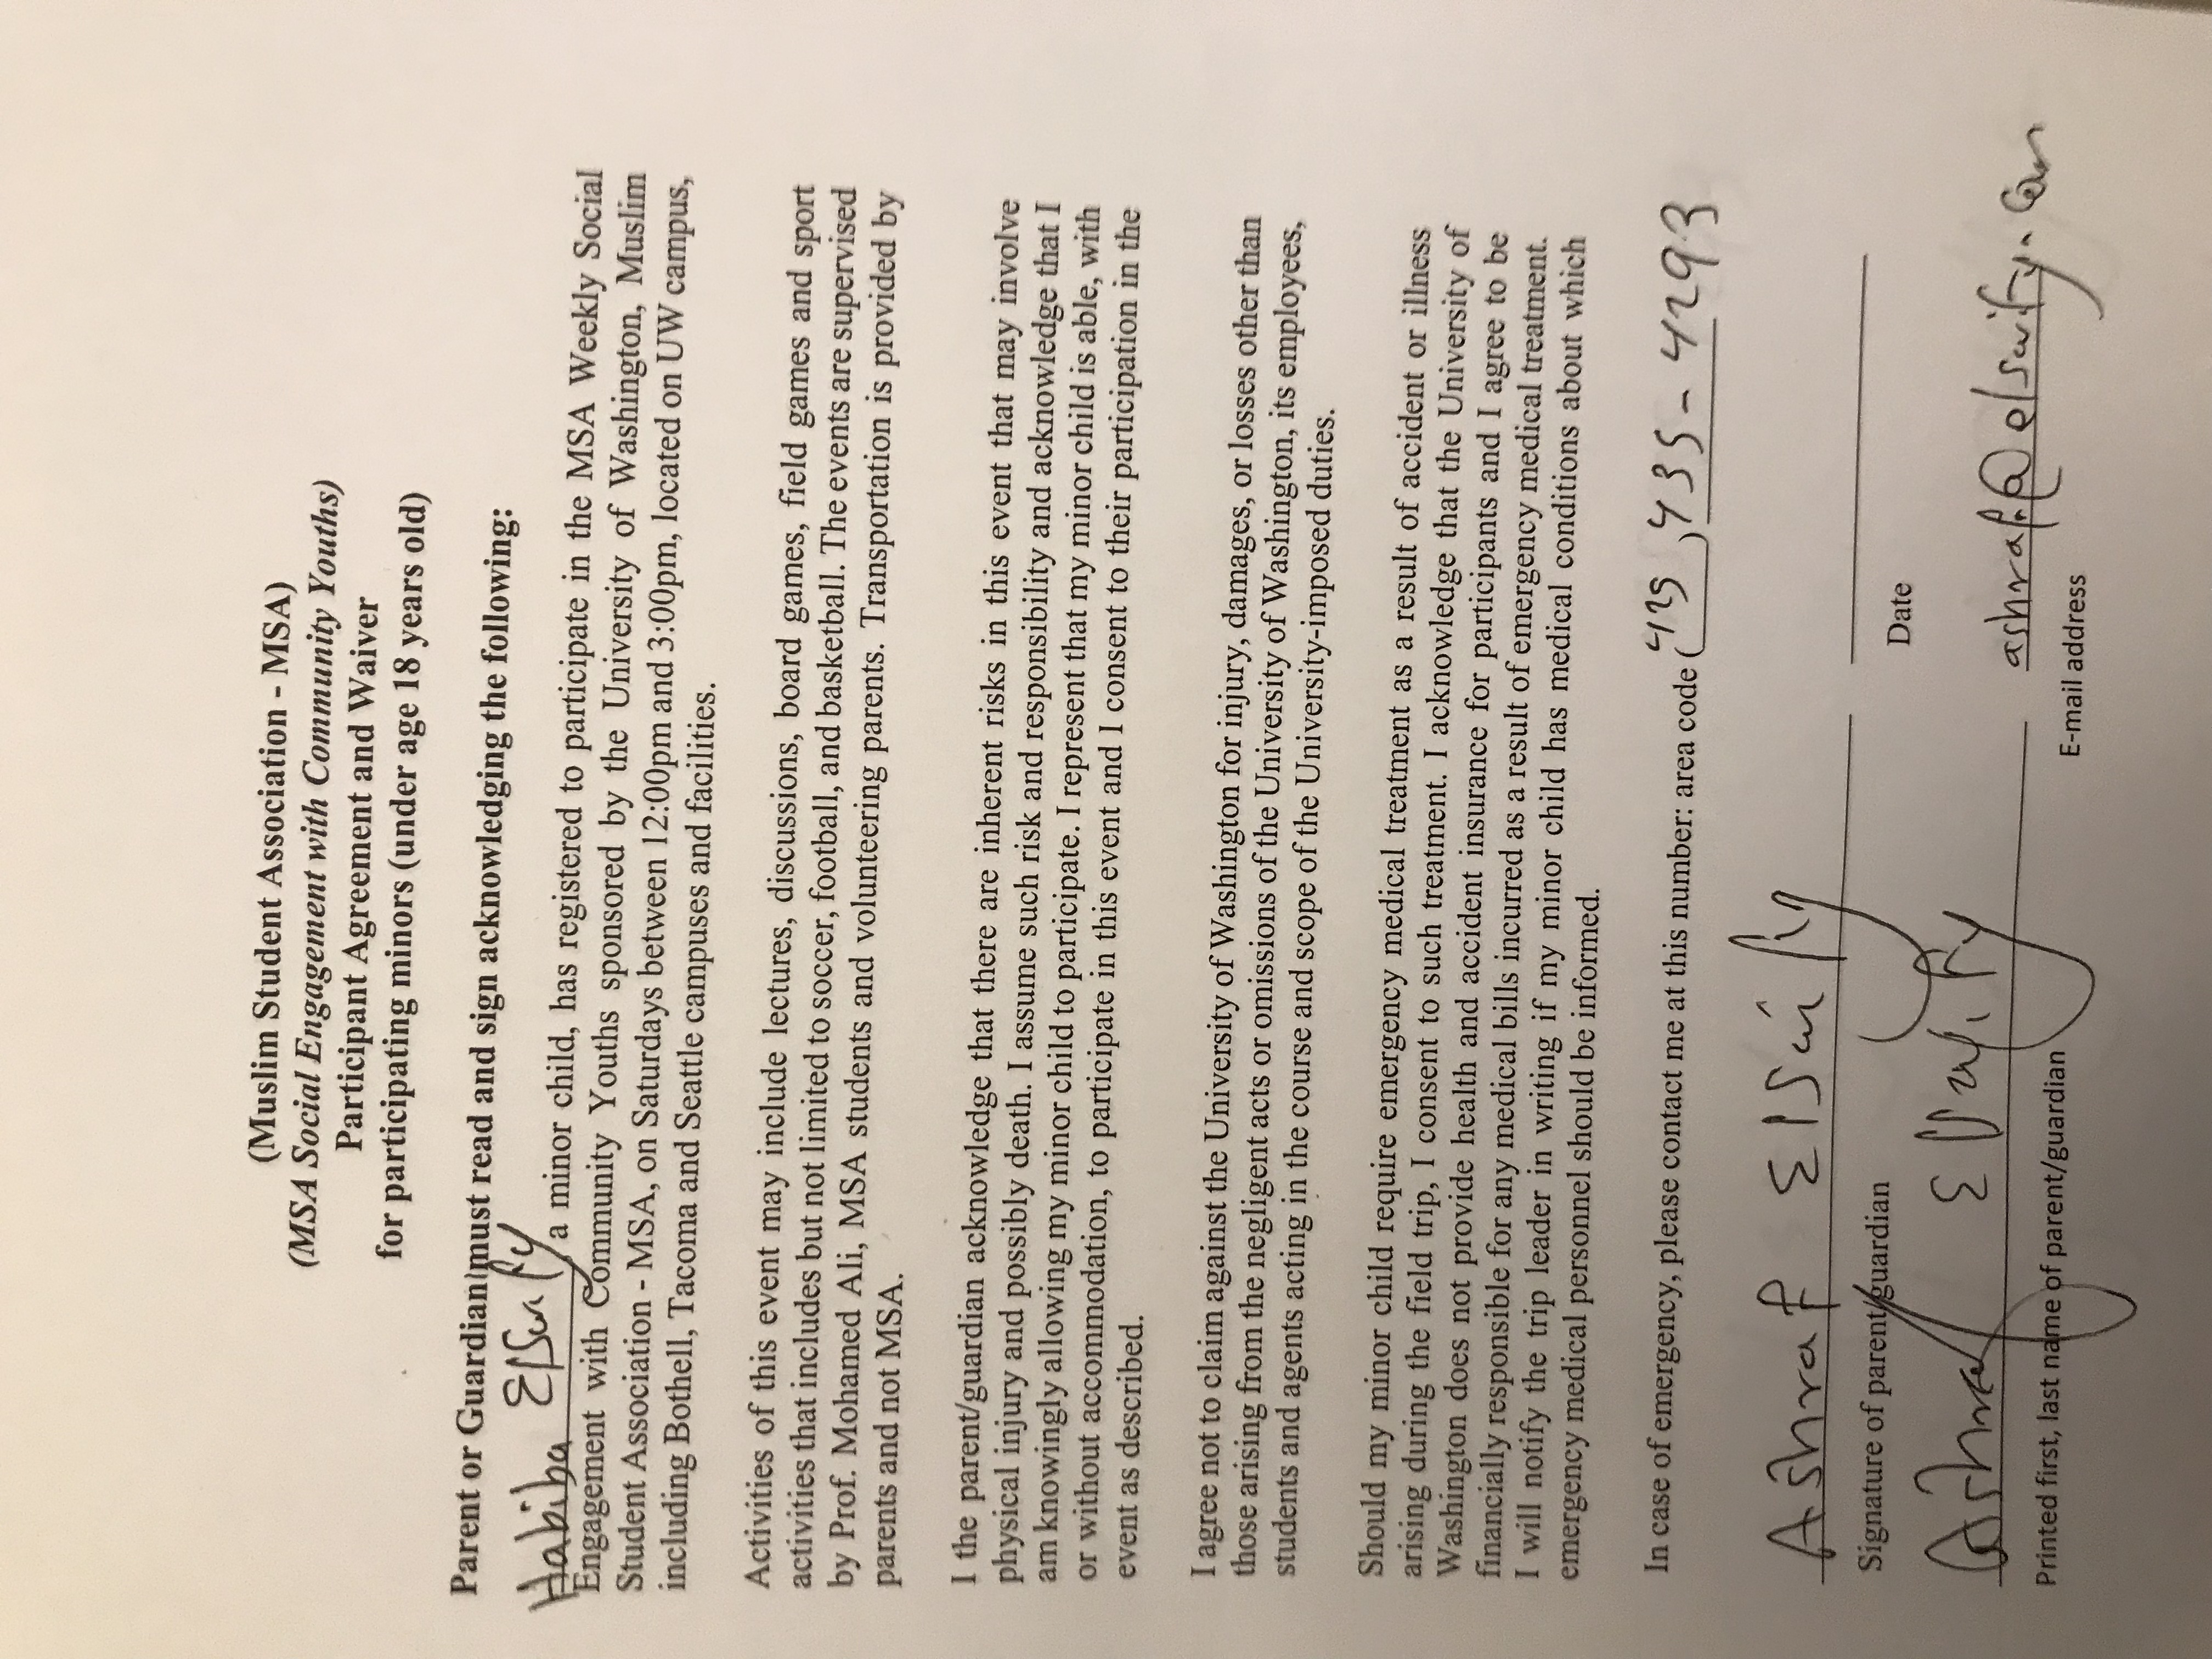 (Muslim Student Association - MSA)
(MSA Social Engagement with Community Youths)
Participant Agreement and Waiver
for participating minors (under age 18 years old)
Parent or Guardian must read and sign acknowledging the following:
Habiba
a minor child, has registered to participate in the MSA Weekly Social
Engagement with Community Youths sponsored by the University of Washington, Muslim
Student Association - MSA, on Saturdays between 12:00pm and 3:00pm, located on UW campus,
including Bothell, Tacoma and Seattle campuses and facilities.
Activities of this event may include lectures, discussions, board games, field games and sport
activities that includes but not limited to soccer, football, and basketball. The events are supervised
by Prof. Mohamed Ali, MSA students and volunteering parents. Transportation is provided by
parents and not MSA.
I the parent/guardian acknowledge that there are inherent risks in this event that may involve
physical injury and possibly death. I assume such risk and responsibility and acknowledge that I
am knowingly allowing my minor child to participate. I represent that my minor child is able, with
or without accommodation, to participate in this event and I consent to their participation in the
event as described.
I agree not to claim against the University of Washington for injury, damages, or losses other than
those arising from the negligent acts or omissions of the University of Washington, its employees,
students and agents acting in the course and scope of the University-imposed duties.
Should my minor child require emergency medical treatment as a result of accident or illness
arising during the field trip, I consent to such treatment. I acknowledge that the University of
Washington does not provide health and accident insurance for participants and I agree to be
financially responsible for any medical bills incurred as a result of emergency medical treatment.
I will notify the trip leader in writing if my minor child has medical conditions about which
emergency medical personnel should be informed.
In case of emergency, please contact me at this number: area code ( ) 435-4293
Ashraf
Signature of parent/guardian
Date
Ashraf
Printed first, last name of parent/guardian
E-mail address